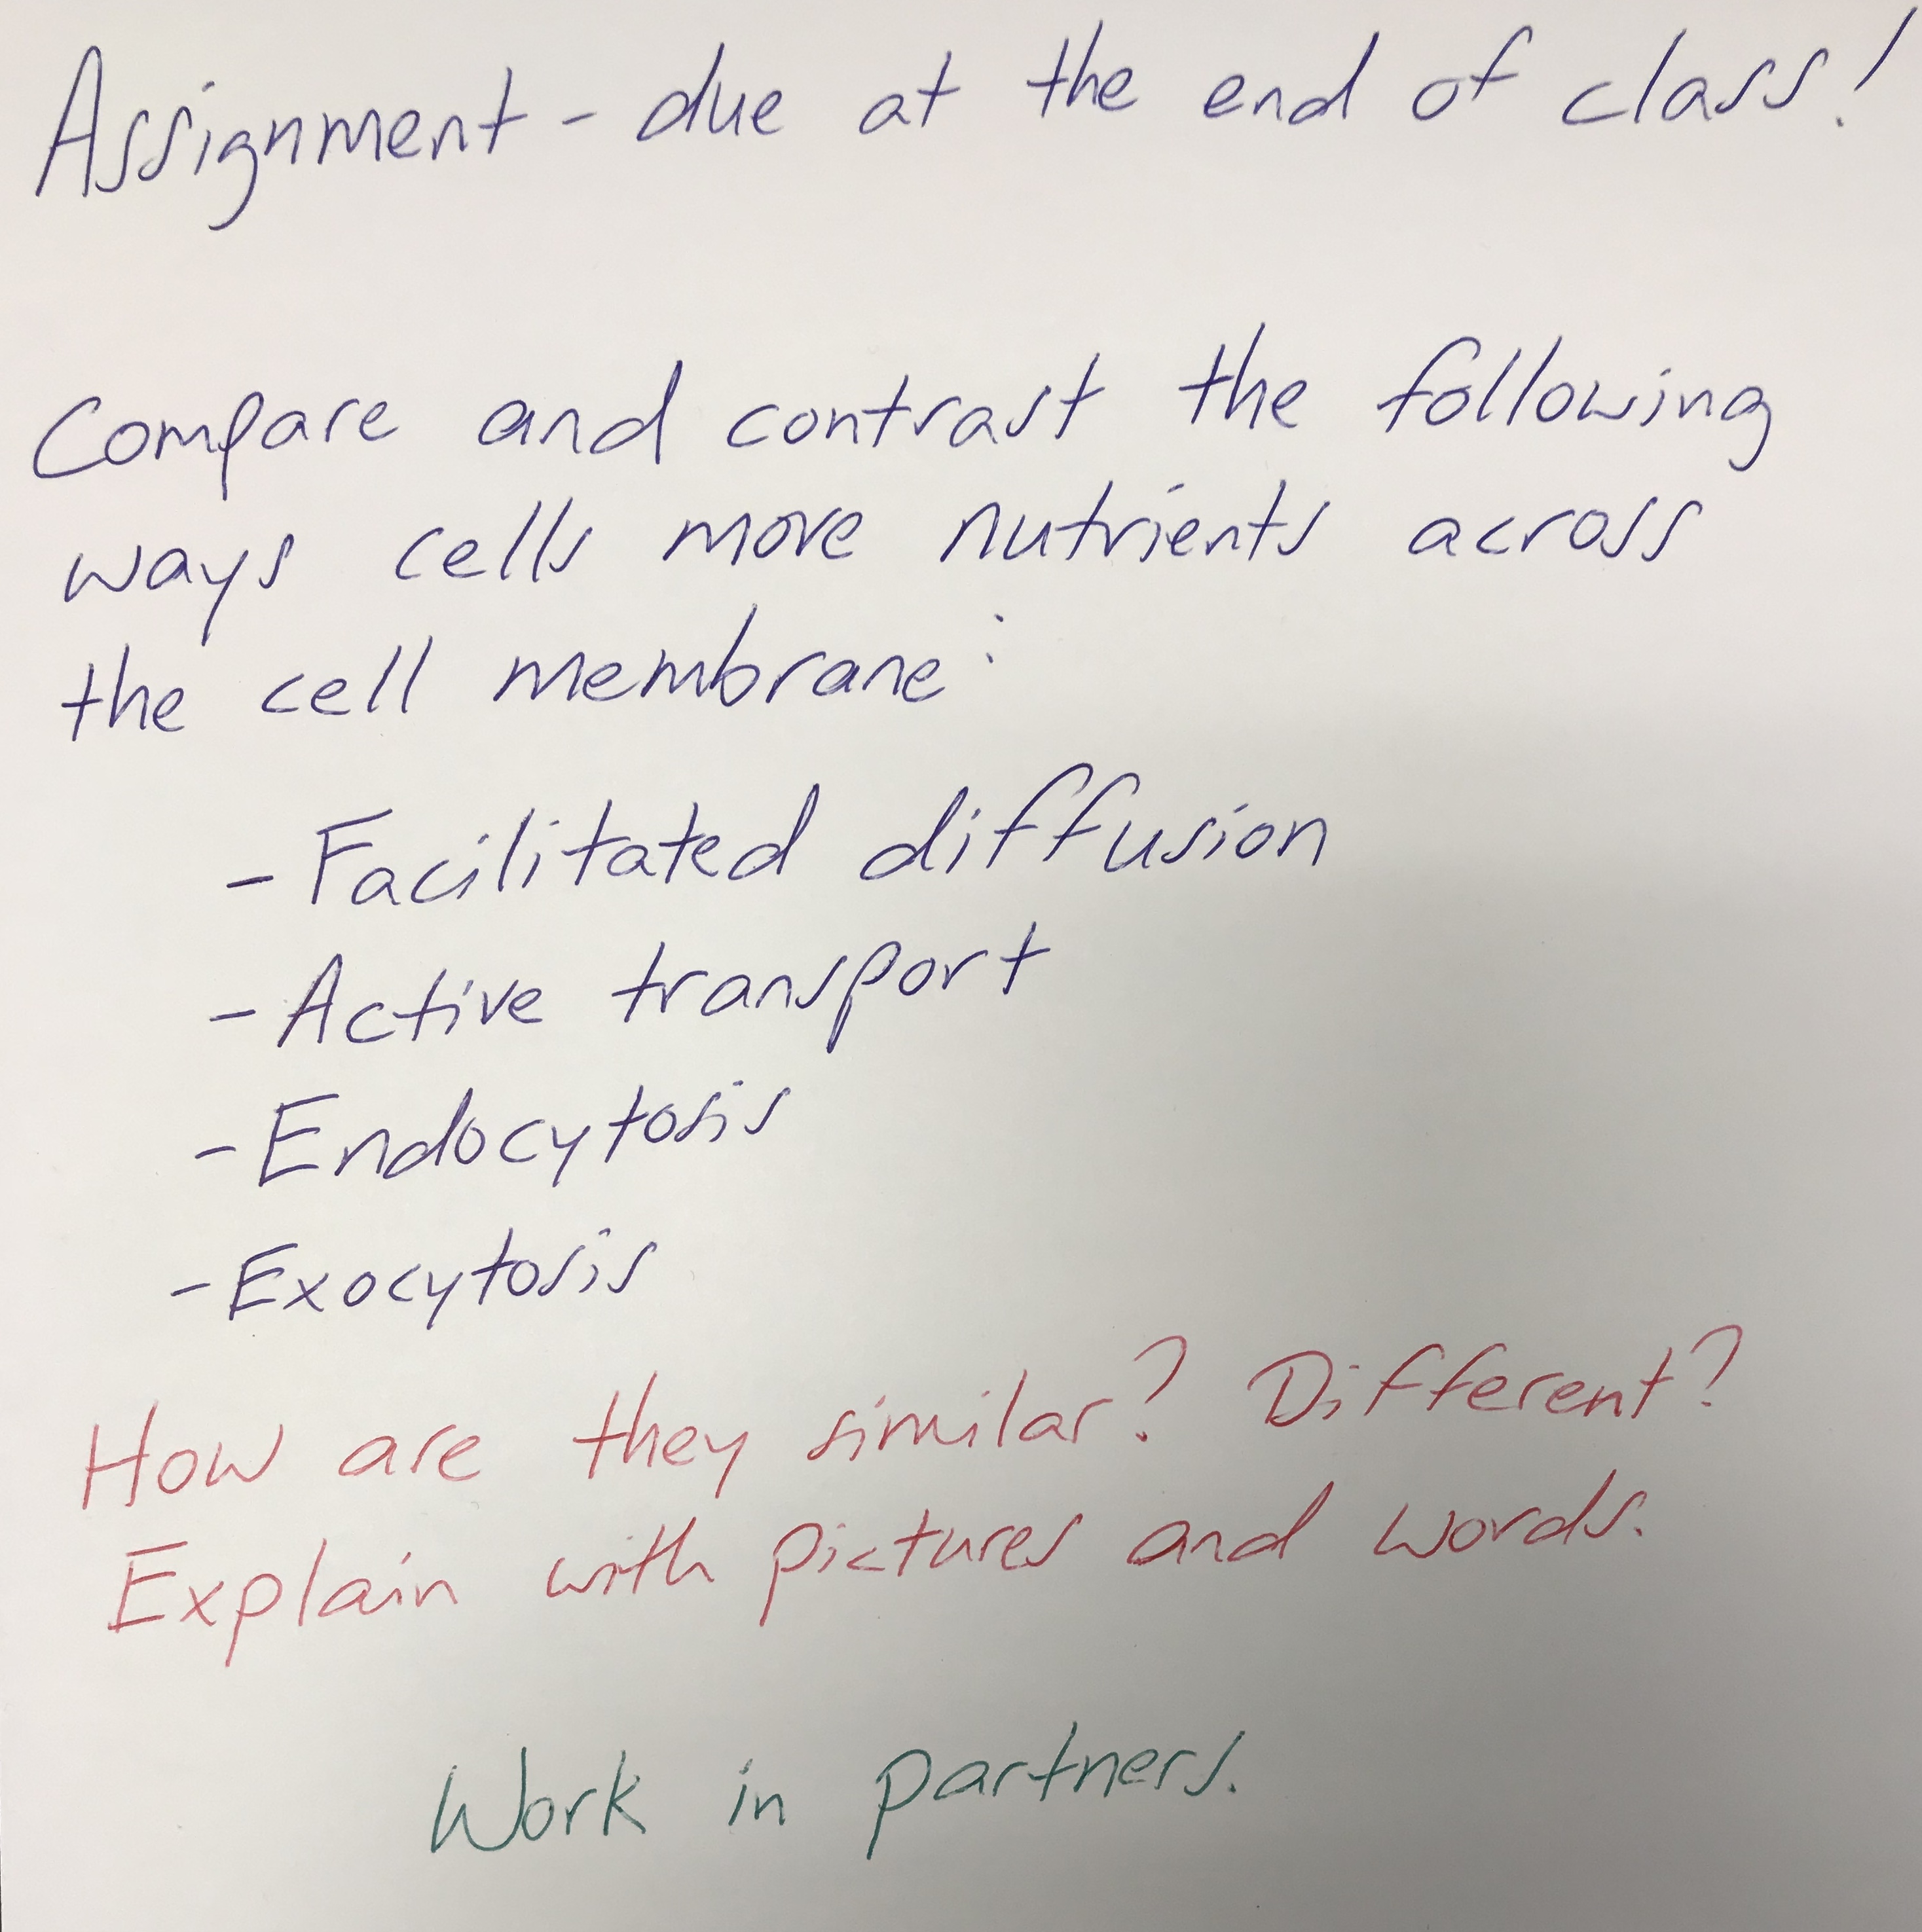 Assignment - due at the end of class!
Compare and contrast the following
ways cells move nutrients across
the cell membrane:
- Facilitated diffusion
- Active transport
- Endocytosis
- Exocytosis
How are they similar? Different?
Explain with pictures and words.
Work in partners.